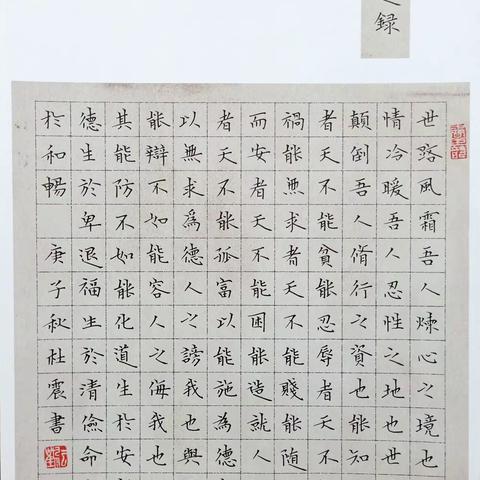 録
世路風霜吾人煉心之境也
情冷暖吾人忍性之地也世
顛倒吾人脩行之資也能知
者天不能貧能忍辱者天不
禍能無求者天不能賤能随
而安者天不能困能造就人
者天不能孤富以能施為德
以無求爲德人之謗我也與
能辯不如能容人之侮我也
其能防不如能化道生於安
德生於卑退福生於清儉命
於和暢 庚子秋杜震書